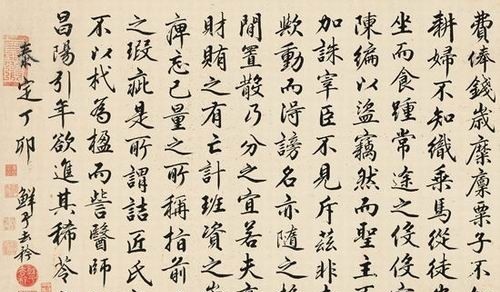 費俸錢歲糜廩粟子不
耕婦不知織乘馬從徒
坐而食踵常途之役役
陳編以盜竊然而聖主
加誅宰臣不見斥茲非
歟動而得謗名亦隨之
閒置散乃分之宜若夫
財賄之有亡計班資之
庳忘己量之所稱指前
之瑕疵是所謂詰匠氏
不以杙為楹而訾醫師
昌陽引年欲進其稀苓
泰定丁卯 鮮于去矜